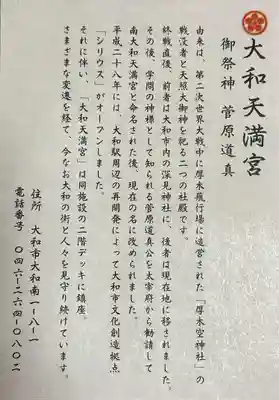 大和天満宮
御祭神 菅原道真
由来は、第二次世界大戦中に厚木飛行場に造営された「厚木空神社」の
戦没者と天照大御神を祀る二つの社殿です。
終戦直後、前者は大和市内の深見神社に、後者は現在地に移されました。
その後、学問の神様として知られる菅原道真公を太宰府から勧請して
南大和天満宮と命名された後、現在の名に改められました。
平成二十八年には、大和駅周辺の再開発によって大和市文化創造拠点
「シリウス」がオープンしました。
それに伴い、「大和天満宮」は同施設の二階デッキに鎮座。
さまざまな変遷を経て、今なお大和の街と人々を見守り続けています。
住所 大和市大和南一-八-一
電話番号 〇四六-二六四-〇八〇二